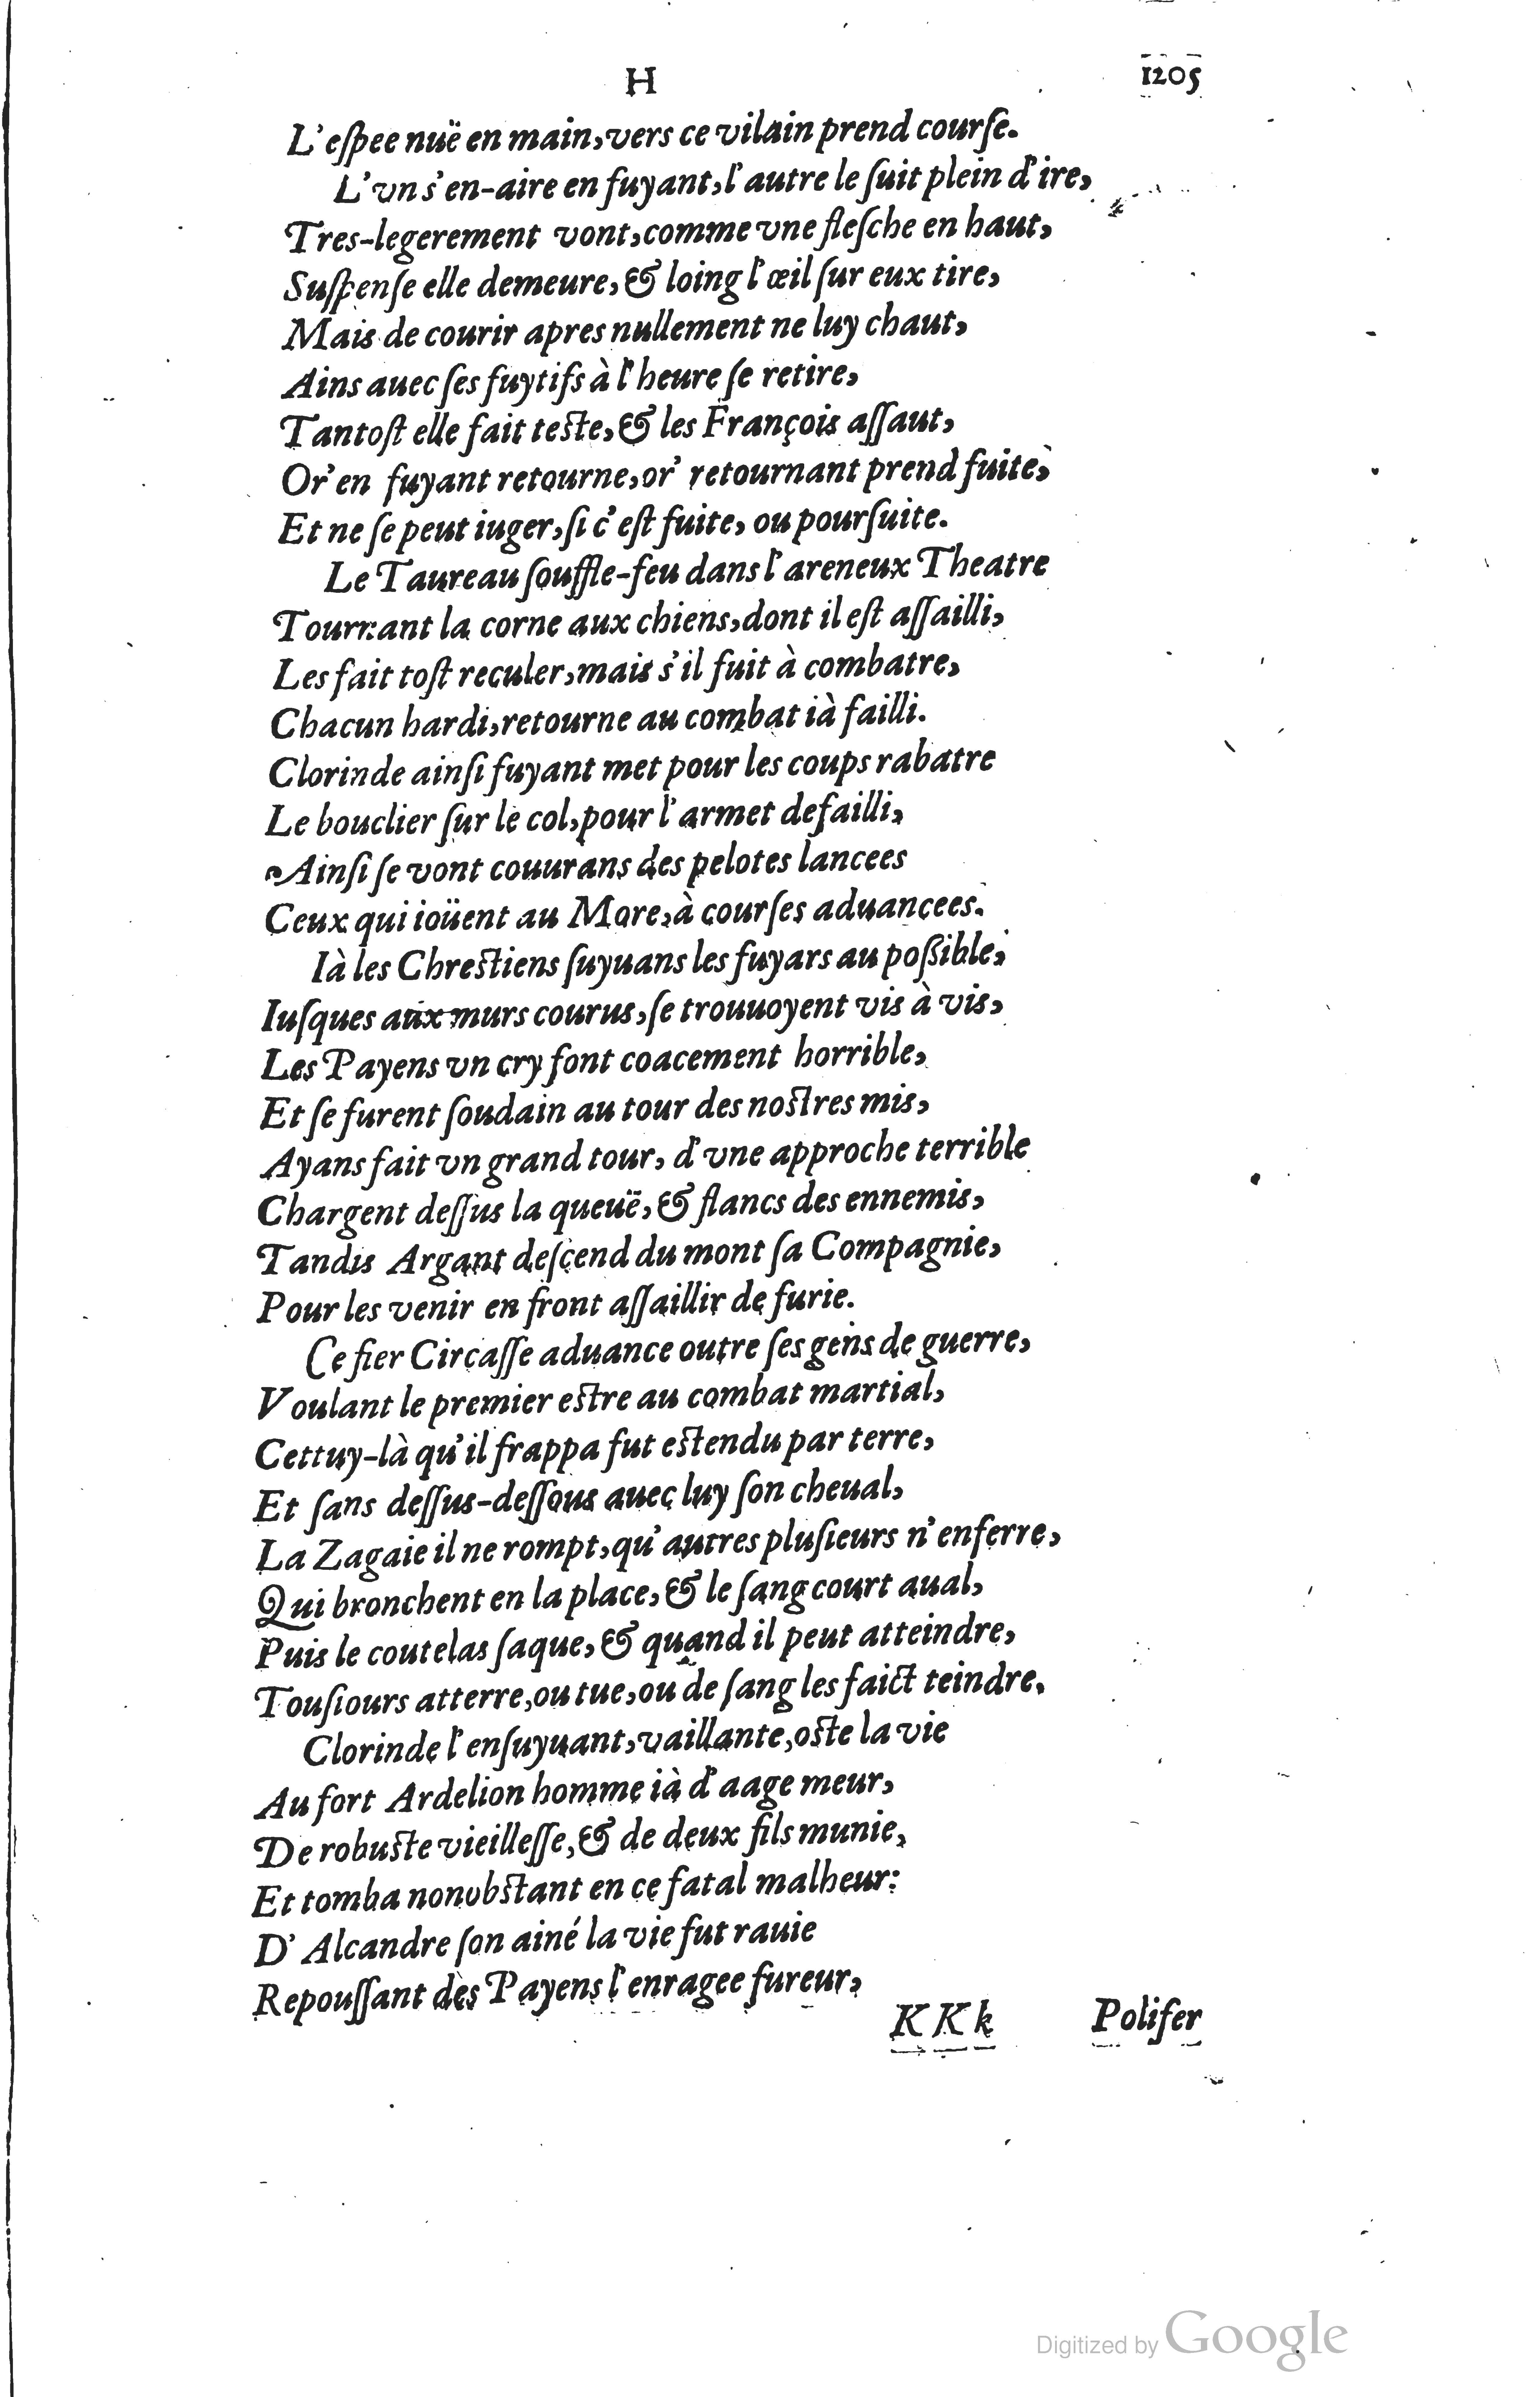 H 1205
L'eſpee nuë en main, vers ce vilain prend courſe.
L'vn s'en-aire en fuyant, l'autre le ſuit plein d'ire,
Tres-legerement vont, comme vne fleſche en haut,
Suſpenſe elle demeure, & loing l'œil ſur eux tire,
Mais de courir apres nullement ne luy chaut,
Ains auec ſes fuytifs à l'heure ſe retire,
Tantoſt elle fait teſte, & les François aſſaut,
Or' en fuyant retourne, or' retournant prend fuite,
Et ne ſe peut iuger, ſi c'eſt fuite, ou pourſuite.
Le Taureau ſouffle-feu dans l'areneux Theatre
Tournant la corne aux chiens, dont il eſt aſſailli,
Les fait toſt reculer, mais s'il fuit à combatre,
Chacun hardi, retourne au combat ià failli.
Clorinde ainſi fuyant met pour les coups rabatre
Le bouclier ſur le col, pour l'armet defailli,
Ainſi ſe vont couurans des pelotes lancees
Ceux qui ioüent au More, à courſes aduancees.
Ià les Chreſtiens ſuyuans les fuyars au poſſible,
Iuſques aux murs courus, ſe trouuoyent vis à vis,
Les Payens vn cry font coacement horrible,
Et ſe furent ſoudain au tour des noſtres mis,
Ayans fait vn grand tour, d'vne approche terrible
Chargent deſſus la queuë, & flancs des ennemis,
Tandis Argant deſcend du mont ſa Compagnie,
Pour les venir en front aſſaillir de furie.
Ce fier Circaſſe aduance outre ſes gens de guerre,
Voulant le premier eſtre au combat martial,
Cettuy-là qu'il frappa fut eſtendu par terre,
Et ſans deſſus-deſſous auec luy ſon cheual,
La Zagaie il ne rompt, qu'autres pluſieurs n'enferre,
Qui bronchent en la place, & le ſang court aual,
Puis le coutelas ſaque, & quand il peut atteindre,
Touſiours atterre, ou tue, ou de ſang les faict teindre.
Clorinde l'enſuyuant, vaillante, oſte la vie
Au fort Ardelion homme ià d'aage meur,
De robuſte vieilleſſe, & de deux fils munie,
Et tomba nonobſtant en ce fatal malheur:
D'Alcandre ſon ainé la vie fut rauie
Repouſſant dès Payens l'enragee fureur,
KKk Polifer
Digitized by Google